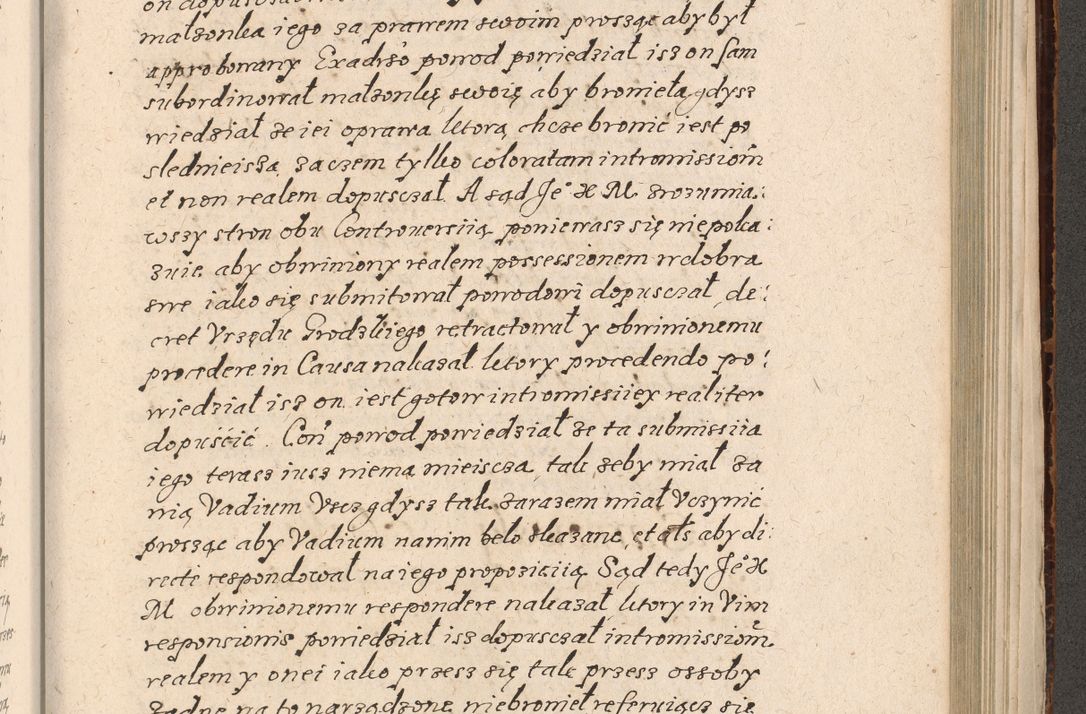 małżonka iego za prawem swoim prosząc aby był
approbowany Exadrso powod powiedział isz on sam
subordinował małżonkę swoię aby broniela gdysz
wiedział że iei oprawa ktorą chcze bronić iest po
slednieiszą, zaczem tylko coloratam intromissiom
et non realem dopusczał. A sąd Je° X M zrozumia:
wszy stron obu Controuersiią ponieważ się niepoka:
zuie, aby obwiniony realem possessionem w dobra
swe iako się submitował powodowi dopusczał, de:
cret Vrzędu Grodzkiego retractował y obwinionemu
procedere in Causa nakazał ktory procedendo po:
wiedział isz on iest gotow intromissiiey realiter
dopuśćić. Con powod powiedział że ta submissiia
iego terasz iusz niema mieiscza, tak żeby miał za
nią Vadium Vecz gdysz tak zarazem miał Vczynić
prosząc aby Vadium na nim belo skazane, et als aby di:
recte respondował na iego propoziciią. Sąd tedy Je° X
M obwinionemu respondere nakazał, ktory in Vim
responsionis powiedział isz dopusczał intromissiom
realem y onei iako przesz się tak przesz ossoby
żadne na to narządzone niebronieł referuiącz się